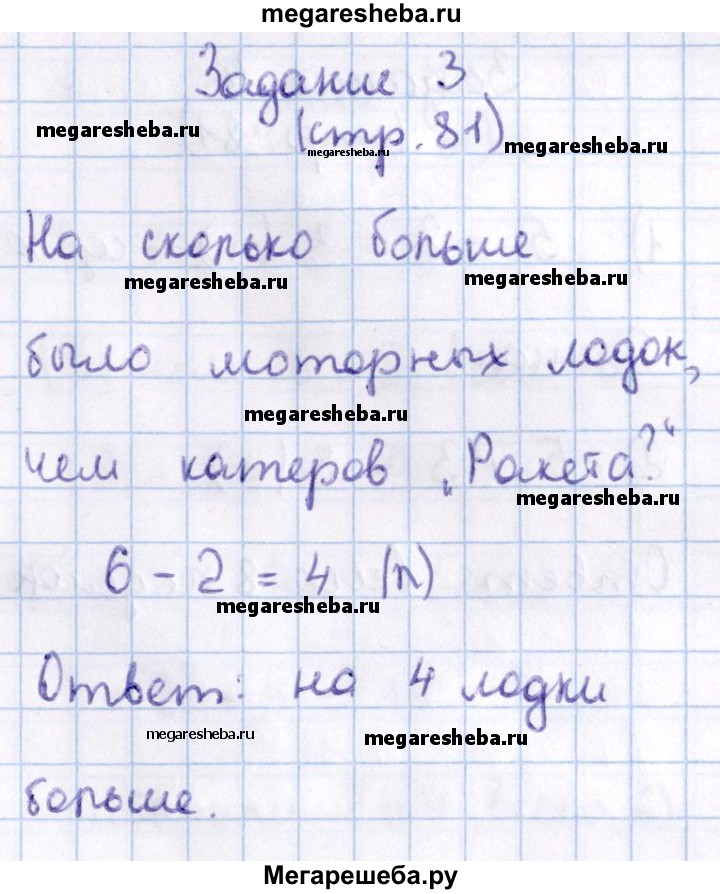 megaresheba.ru
Задание 3
megaresheba.ru
(стр. 81)
megaresheba.ru
megaresheba.ru
На сколько больше
megaresheba.ru
megaresheba.ru
было моторных лодок,
megaresheba.ru
чем катеров „Ракета?“
megaresheba.ru
6 - 2 = 4 (л)
megaresheba.ru
Ответ: на 4 лодки
megaresheba.ru
megaresheba.ru
больше.
Мегарешеба.ру